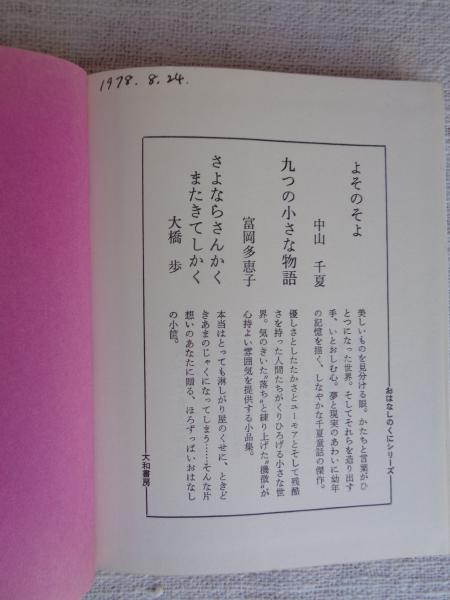 1978.8.24.
おはなしのくにシリーズ
よそのそよ
中山 千夏
美しいものを見分ける眼。かたちと言葉がひ
とつになった世界。そしてそれらを造り出す
手、いとおしむ心。夢と現実のあわいに幼年
の記憶を描く、しなやかな千夏童話の傑作。
九つの小さな物語
富岡多恵子
優しさとしたたかさとユーモアとそして残酷
さを持った人間たちがくりひろげる小さな世
界。気のきいた“落ち”と練り上げた“機微”が
心持よい雰囲気を提供する小品集。
さよならさんかく
またきてしかく
大橋 歩
本当はとっても淋しがり屋のくせに、ときど
きあまのじゃくになってしまう……そんな片
想いのあなたに贈る、ほろずっぱいおはなし
の小筐。
大和書房